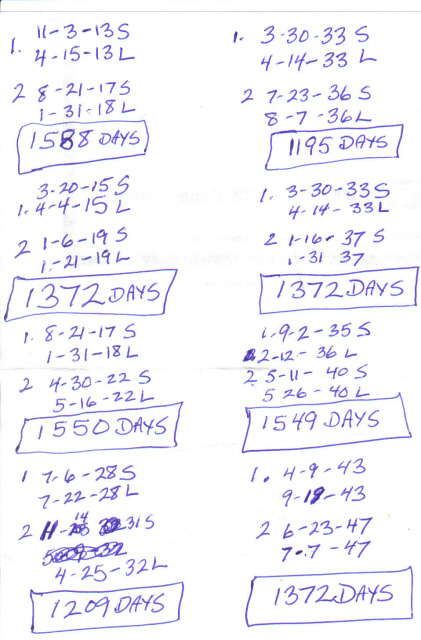 11-3-13 S
1. 4-15-13 L
2 8-21-17 S
1-31-18 L
1588 DAYS
3-20-15 S
1. 4-4-15 L
2 1-6-19 S
1-21-19 L
1372 DAYS
1. 8-21-17 S
1-31-18 L
2 4-30-22 S
5-16-22 L
1550 DAYS
1 7-6-28 S
7-22-28 L
14
2 11- 31 S
4-25-32 L
1209 DAYS
1. 3-30-33 S
4-14-33 L
2 7-23-36 S
8-7-36 L
1195 DAYS
1. 3-30-33 S
4-14-33 L
2 1-16-37 S
1-31 37
1372 DAYS
1. 9-2-35 S
2-12-36 L
2. 5-11-40 S
5 26-40 L
1549 DAYS
1. 4-9-43
9-19-43
2 6-23-47
7-7-47
1372 DAYS